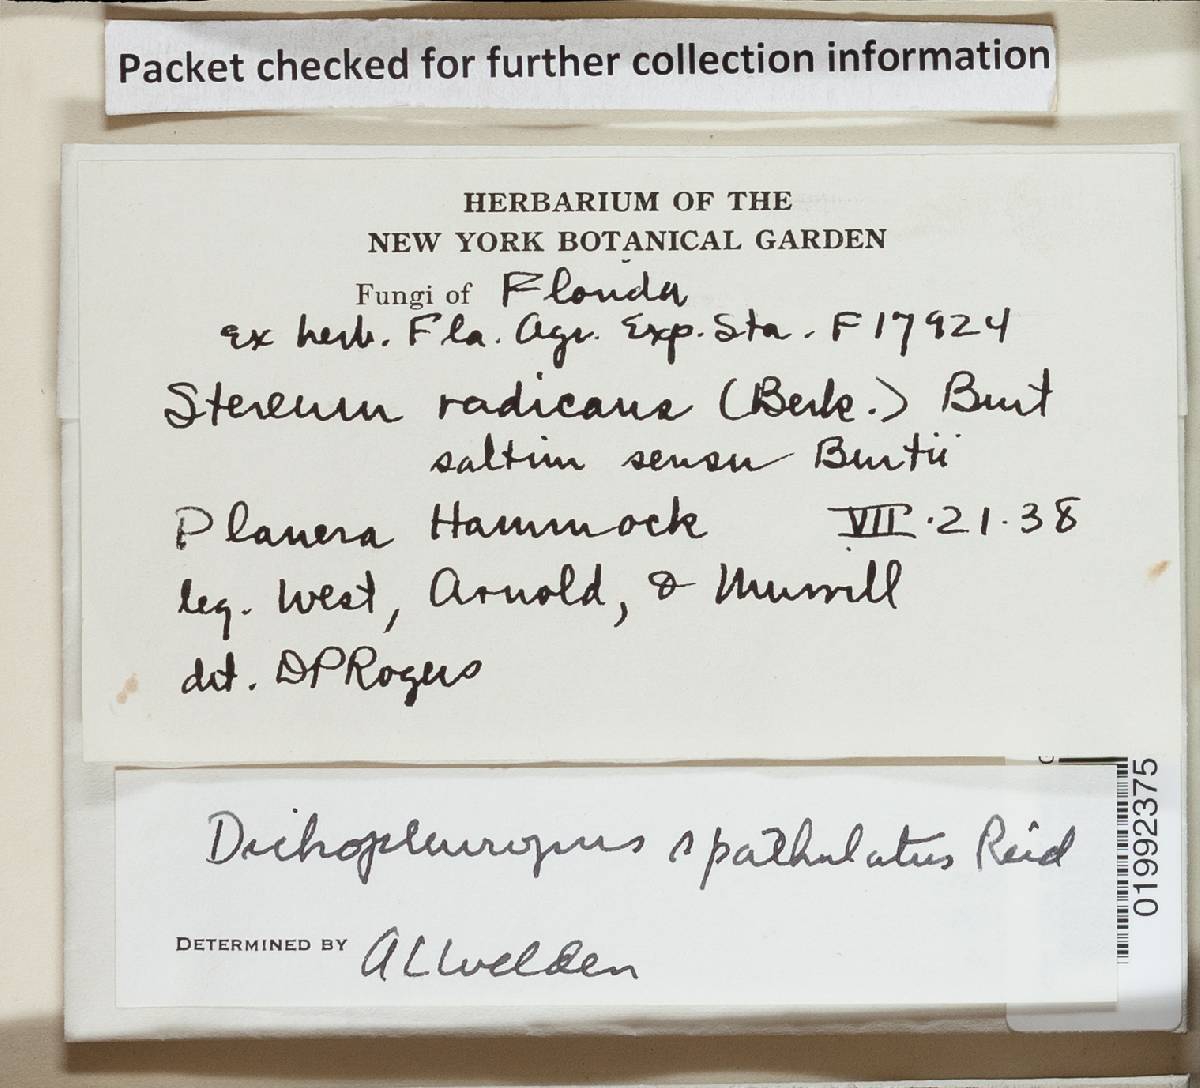 Packet checked for further collection information
HERBARIUM OF THE
NEW YORK BOTANICAL GARDEN
Fungi of Florida
ex herb. Fla. Agr. Exp. Sta. F17924
Stereum radicans (Berk.) Burt
saltim sensu Burtii
Planera Hammock VII.21.38
leg. West, Arnold, & Murrill
det. DPRogers
Dichopleuropus spathulatus Reid
DETERMINED BY ALWelden
01992375